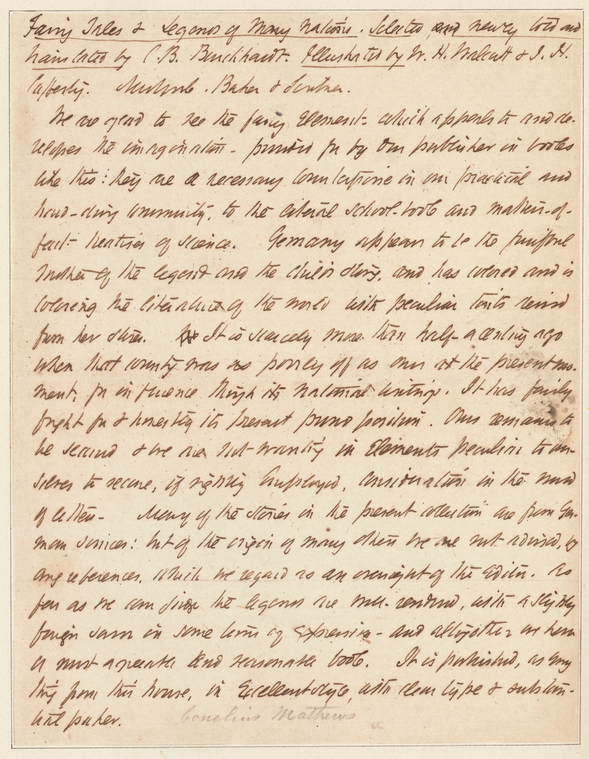 Fairy Tales & Legends of Many Nations. Selected and newly told and
translated by C. B. Burckhardt. Illustrated by W. H. Walcutt & J. H.
Cafferty. New York. Baker & Scribner.
We are glad to see the fairy element - which appeals to and de-
velopes the imagination - provided for by our publishers in books
like this: they are a necessary in our practical and
hard-doing community, to the liberal school-book and matter-of-
fact treatises of science. Germany appears to be the fruitful
mother of the legend and the child's story, and has colored and is
coloring the literature of the world with peculiar tints
from her stores. It is scarcely more than half a century ago
when that country was as poorly off as ours at the present mo-
ment, for influence through its national writings. It has fairly
fought for & honestly its present proud position. Ours remains to
be secured & we are not wanting in elements peculiar to our-
selves to secure, if rightly employed, consideration in the world
of letters - Many of the stories in the present collection are from Ger-
man sources: but of the origin of many others we are not advised, by
any references, which we regard as an oversight of the Editor. As
far as we can judge the legends are well-rendered, with a slightly
foreign savor in some terms of expression - and altogether we have
a most agreeable and seasonable book. It is published, as every
thing from this house, in excellent style, with clear type & substan-
tial paper.
Cornelius Mathews